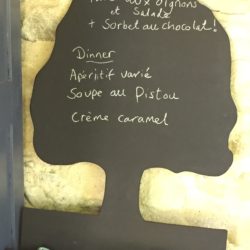 aux oignons
et Salade
+ Sorbet au chocolat!
Dinner
Apéritif varié
Soupe au Pistou
Crème caramel